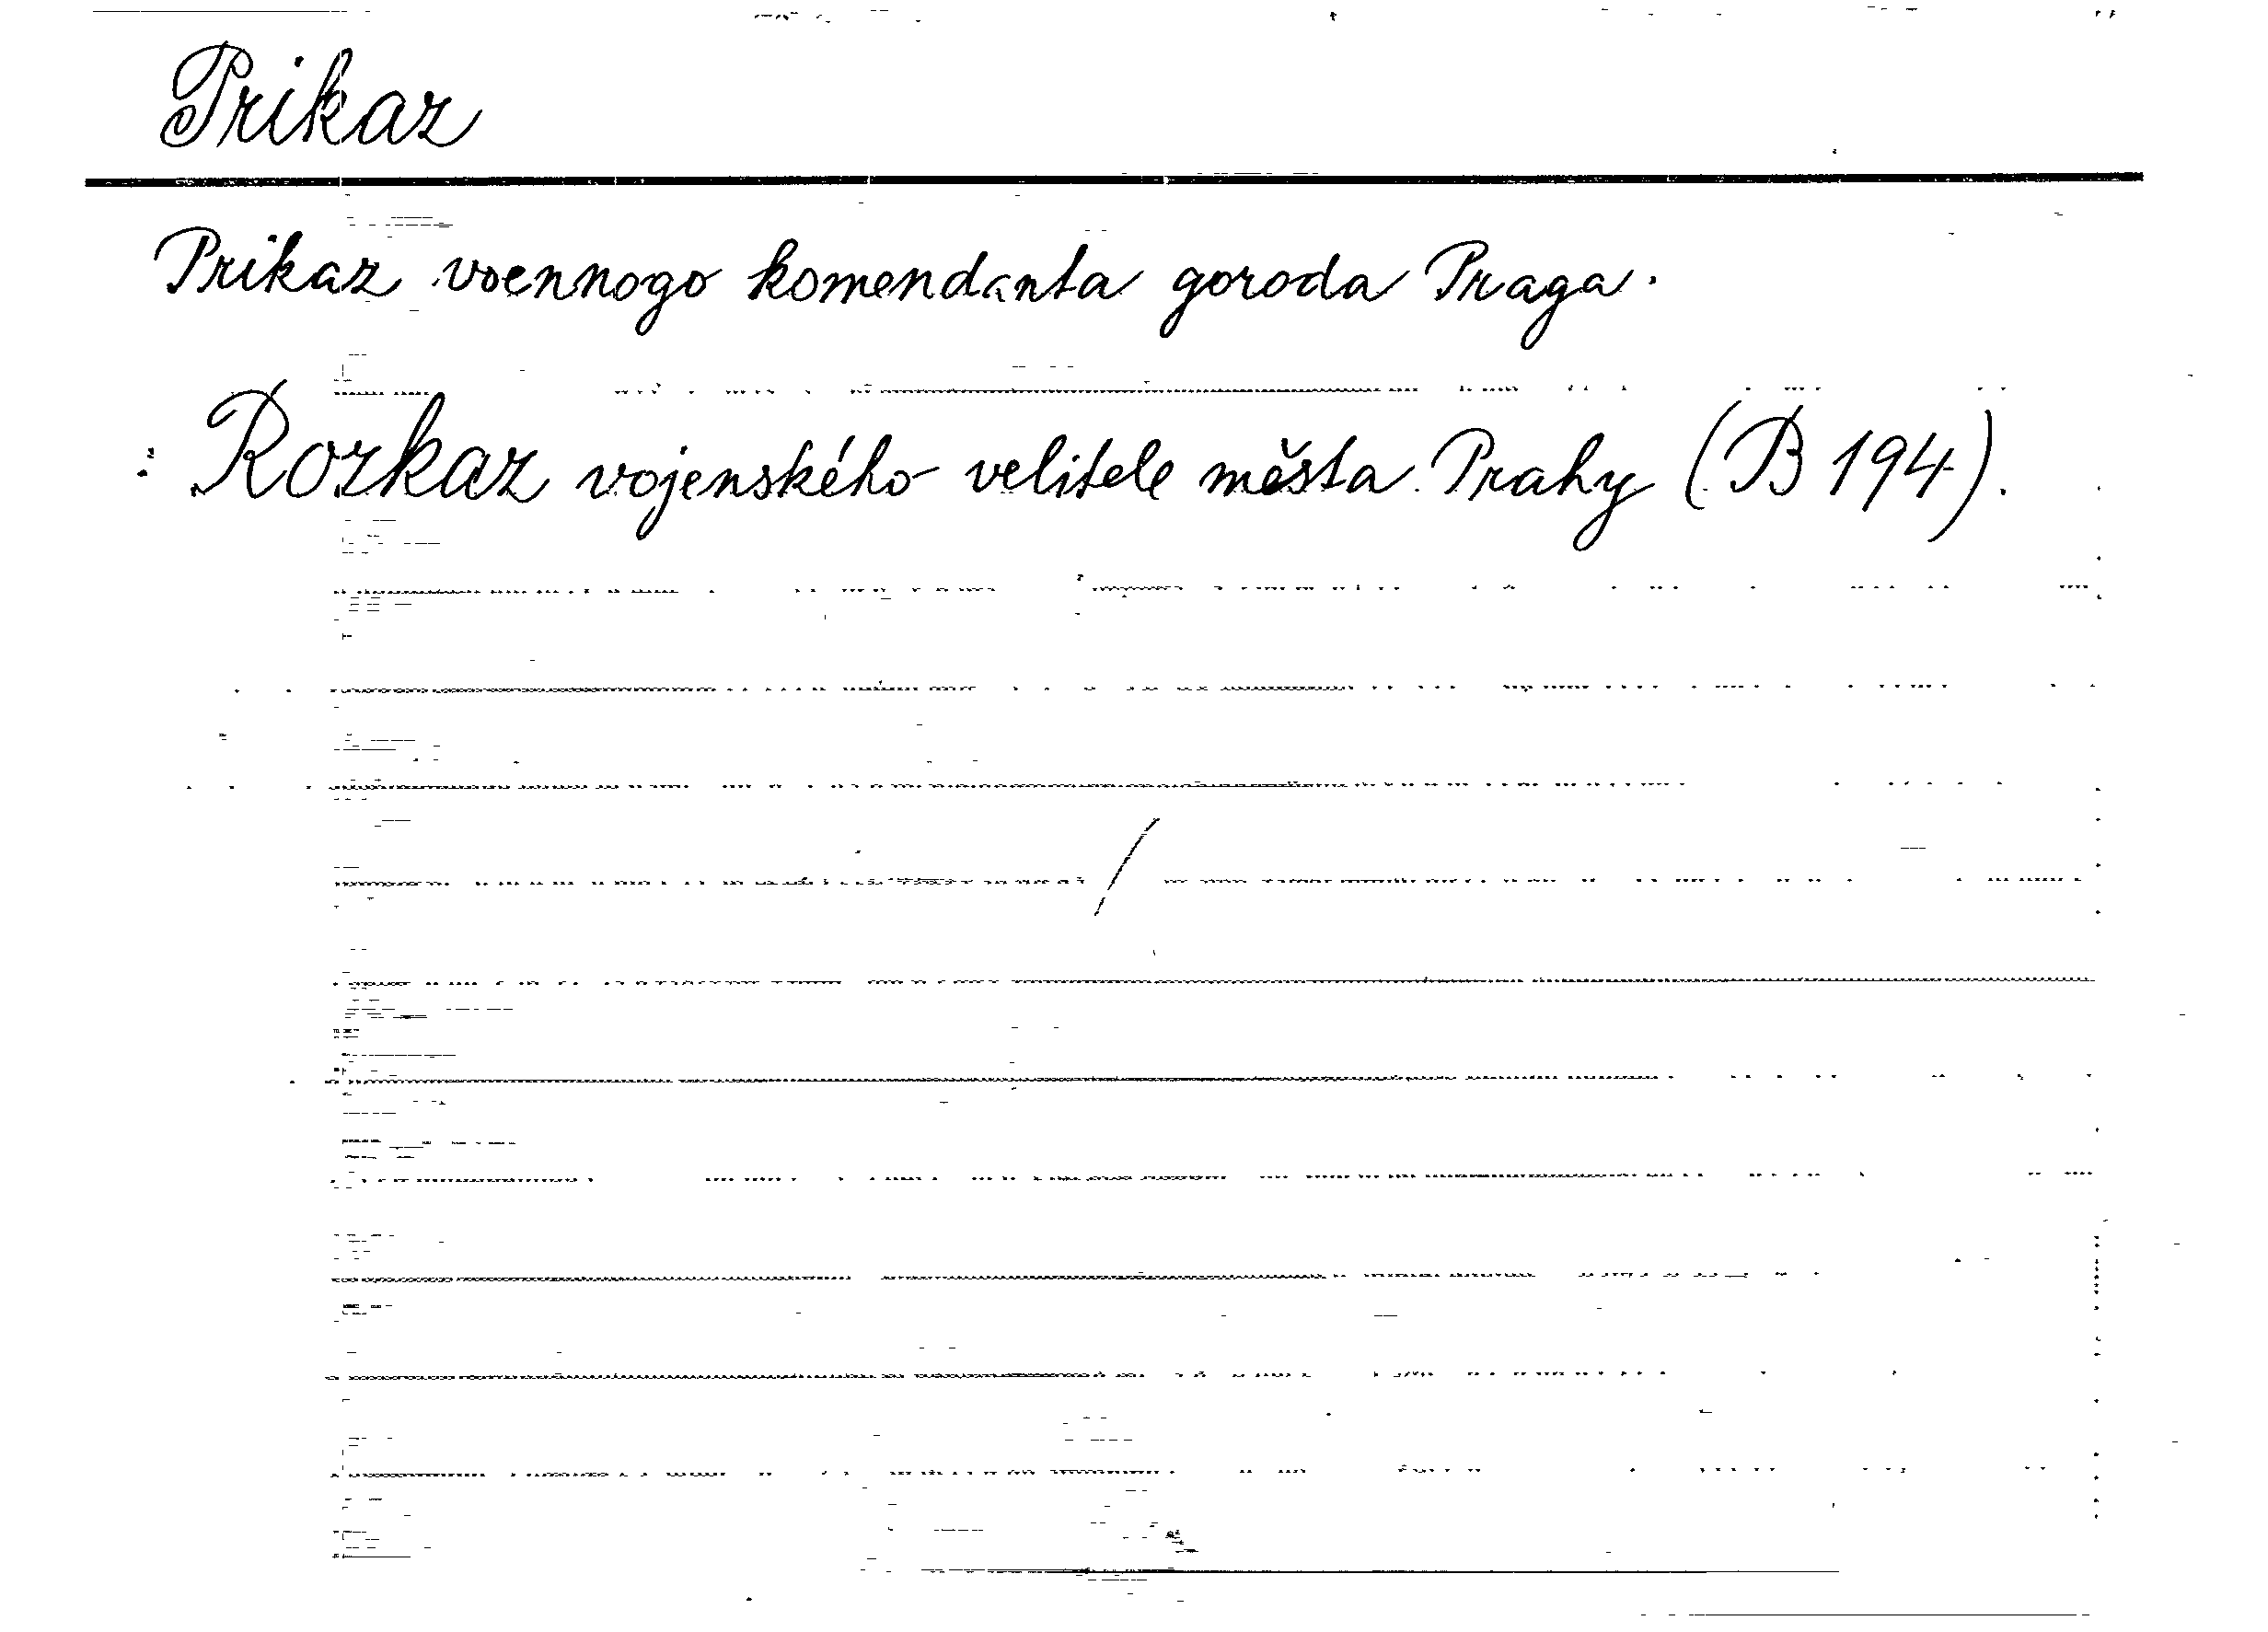 Prikaz
Prikaz voennogo komendanta goroda Praga.
: Rozkaz vojenského velitele města Prahy (B 194).